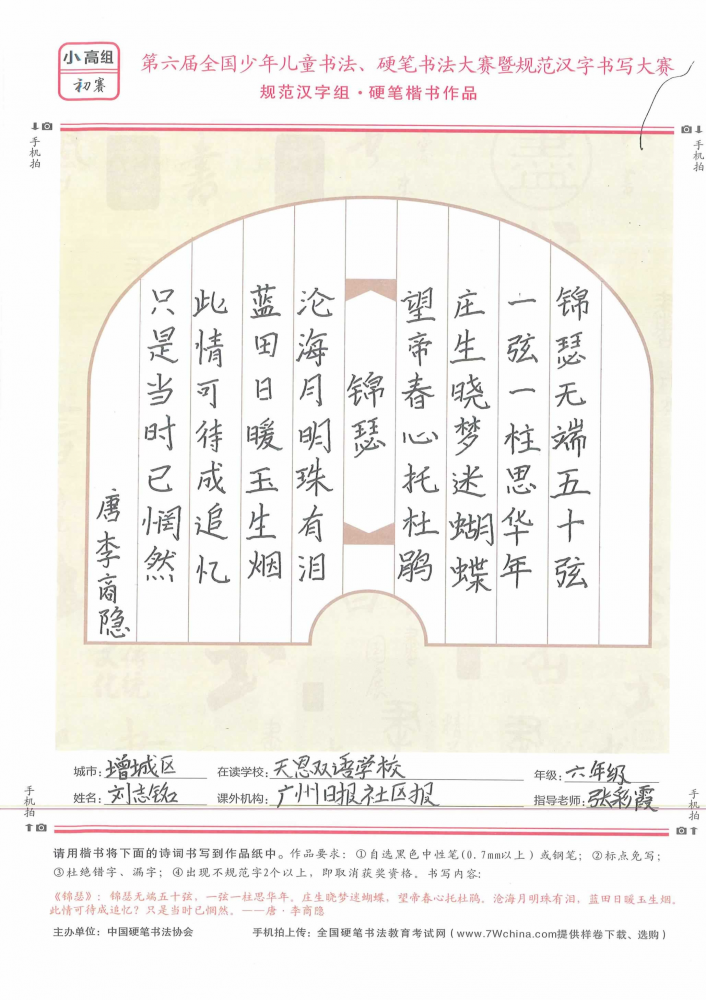 小高组
初赛
第六届全国少年儿童书法、硬笔书法大赛暨规范汉字书写大赛
规范汉字组·硬笔楷书作品
手机拍
手机拍
锦瑟无端五十弦
一弦一柱思华年
庄生晓梦迷蝴蝶
望帝春心托杜鹃
锦瑟
沧海月明珠有泪
蓝田日暖玉生烟
此情可待成追忆
只是当时已惘然
唐李商隐
城市：增城区 在读学校：天恩双语学校 年级：六年级
姓名：刘志铭 课外机构：广州日报社区报 指导老师：张彩霞
手机拍
手机拍
请用楷书将下面的诗词书写到作品纸中。作品要求：①自选黑色中性笔(0.7mm以上)或钢笔；②标点免写；
③杜绝错字、漏字；④出现不规范字2个以上，即取消获奖资格。书写内容：
《锦瑟》：锦瑟无端五十弦，一弦一柱思华年。庄生晓梦迷蝴蝶，望帝春心托杜鹃。沧海月明珠有泪，蓝田日暖玉生烟。
此情可待成追忆？只是当时已惘然。——唐·李商隐
主办单位：中国硬笔书法协会 手机拍上传：全国硬笔书法教育考试网（www.7Wchina.com提供样卷下载、选购）